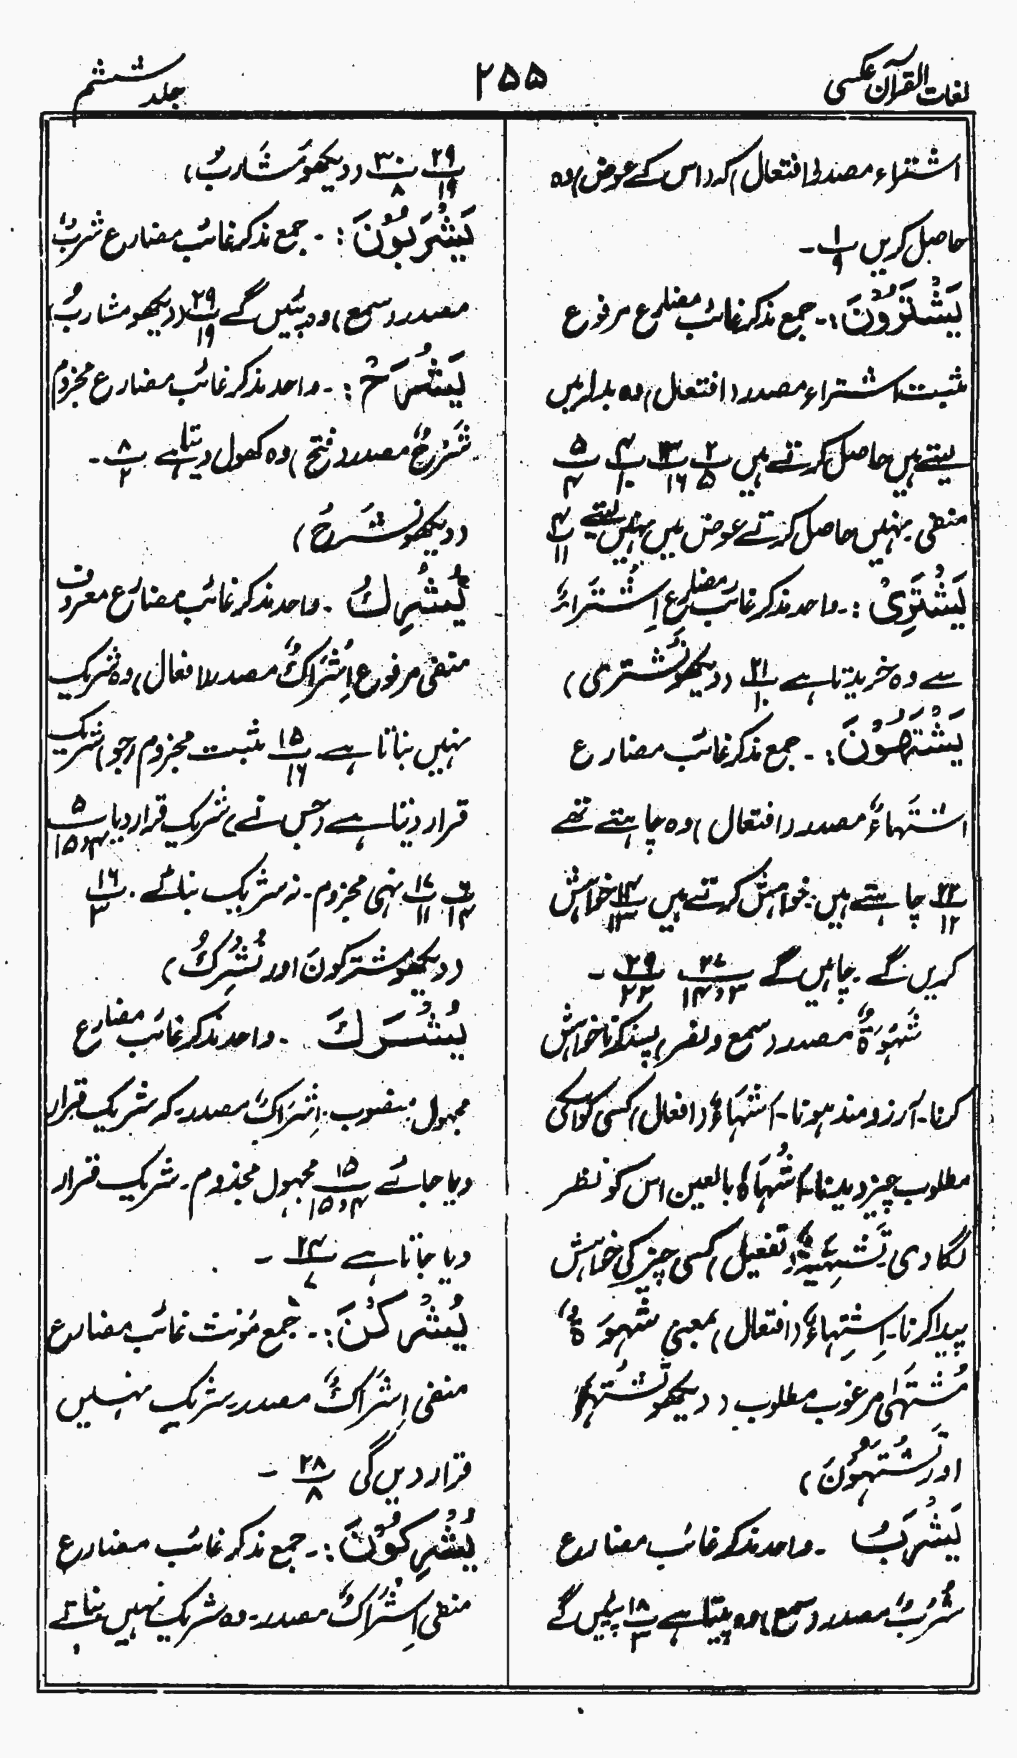 لغات القرآن عکسی
۲۵۵
جلد ششم
اشتراء مصدر (افتعال) کہ (اس کے عوض) وہ
حاصل کریں پ ۱/۹ -
یَشْتَرُوْنَ :- جمع مذکر غائب مضارع مرفوع
مثبت اشتراء مصدر (افتعال) وہ بدلہ میں
لیتے ہیں حاصل کرتے ہیں پ ۲/۵ پ ۱۳/۱۶ پ ۴/۱۰ پ ۵/۴
منفی نہیں حاصل کرتے عوض میں نہیں لیتے پ ۴/۱۱
یَشْتَرِیْ :- واحد مذکر غائب مضارع اِشْتَرَاءٌ
سے وہ خریدتا ہے پ ۲۱/۱۰ (دیکھو نَشْتَرِی)
یَشْتَہُوْنَ :- جمع مذکر غائب مضارع
اشتہاءٌ مصدر (افتعال) وہ چاہتے تھے
۲۲/۱۲ چاہتے ہیں خواہش کرتے ہیں ۱۴/۱۳ خواہش
کریں گے چاہیں گے ۲۷/۳و۱۴ ۲۹/۲۲ -
شَہْوَۃٌ مصدر (سمع و نصر) پسند کرنا خواہش
کرنا۔ آرزو مند ہونا۔ اشہاءٌ (افعال) کسی کو اسکی
مطلوب چیز دیدینا۔ اَشْہَاہُ بالعین اس کو نظر
لگادی تَشْہِیَۃٌ (تفعیل) کسی چیز کی خواہش
پیدا کرنا۔ اِشْتِہاءٌ (افتعال) بمعنی شَہْوَۃٌ
مُشْتَہٰی مرغوب مطلوب (دیکھو تَشْتَہِیْ
اور تَشْتَہُوْنَ)
یَشْرَبُ - واحد مذکر غائب مضارع
شُرْبٌ مصدر (سمع) وہ پیتا ہے پ ۱۸/۳ پئیں گے
پ ۲۹/۱۹ پ ۳۰/۸ (دیکھو مَشَارِبُ)
یَشْرَبُوْنَ :- جمع مذکر غائب مضارع شربٌ
مصدر (سمع) وہ پئیں گے پ ۲۹/۱۹ (دیکھو مشاربُ)
یَشْرَحْ :- واحد مذکر غائب مضارع مجزوم
شَرْحٌ مصدر (فتح) وہ کھول دیتا ہے پ ۸/۲ -
(دیکھو نَشْرَحْ)
یُشْرِکُ - واحد مذکر غائب مضارع معروف
منفی مرفوع اِشْرَاکٌ مصدر (افعال) وہ شریک
نہیں بناتا ہے پ ۱۵/۱۶ مثبت مجزوم (جو) شریک
قرار دیتا ہے (جس نے) شریک قرار دیا پ ۵/۴و۱۵
پ ۶/۱۴ پ ۱۷/۱۱ نہی مجزوم۔ نہ شریک بنائے ۱۶/۳
(دیکھو مشرکونَ اور نُشْرِکُ)
یُشْرَکَ - واحد مذکر غائب مضارع
مجہول منصوب۔ اِشْرَاکٌ مصدر۔ کہ شریک قرار
دیا جائے ۱۵/۴و۱۵ مجہول مجذوم۔ شریک قرار
دیا جاتا ہے ۲۴/۷ -
یُشْرِکْنَ :- جمع مؤنث غائب مضارع
منفی اِشْرَاکٌ مصدر۔ شریک نہیں
قرار دیں گی ۲۸/۸ -
یُشْرِکُوْنَ :- جمع مذکر غائب مضارع
منفی اِشْرَاکٌ مصدر۔ وہ شریک نہیں بناتے